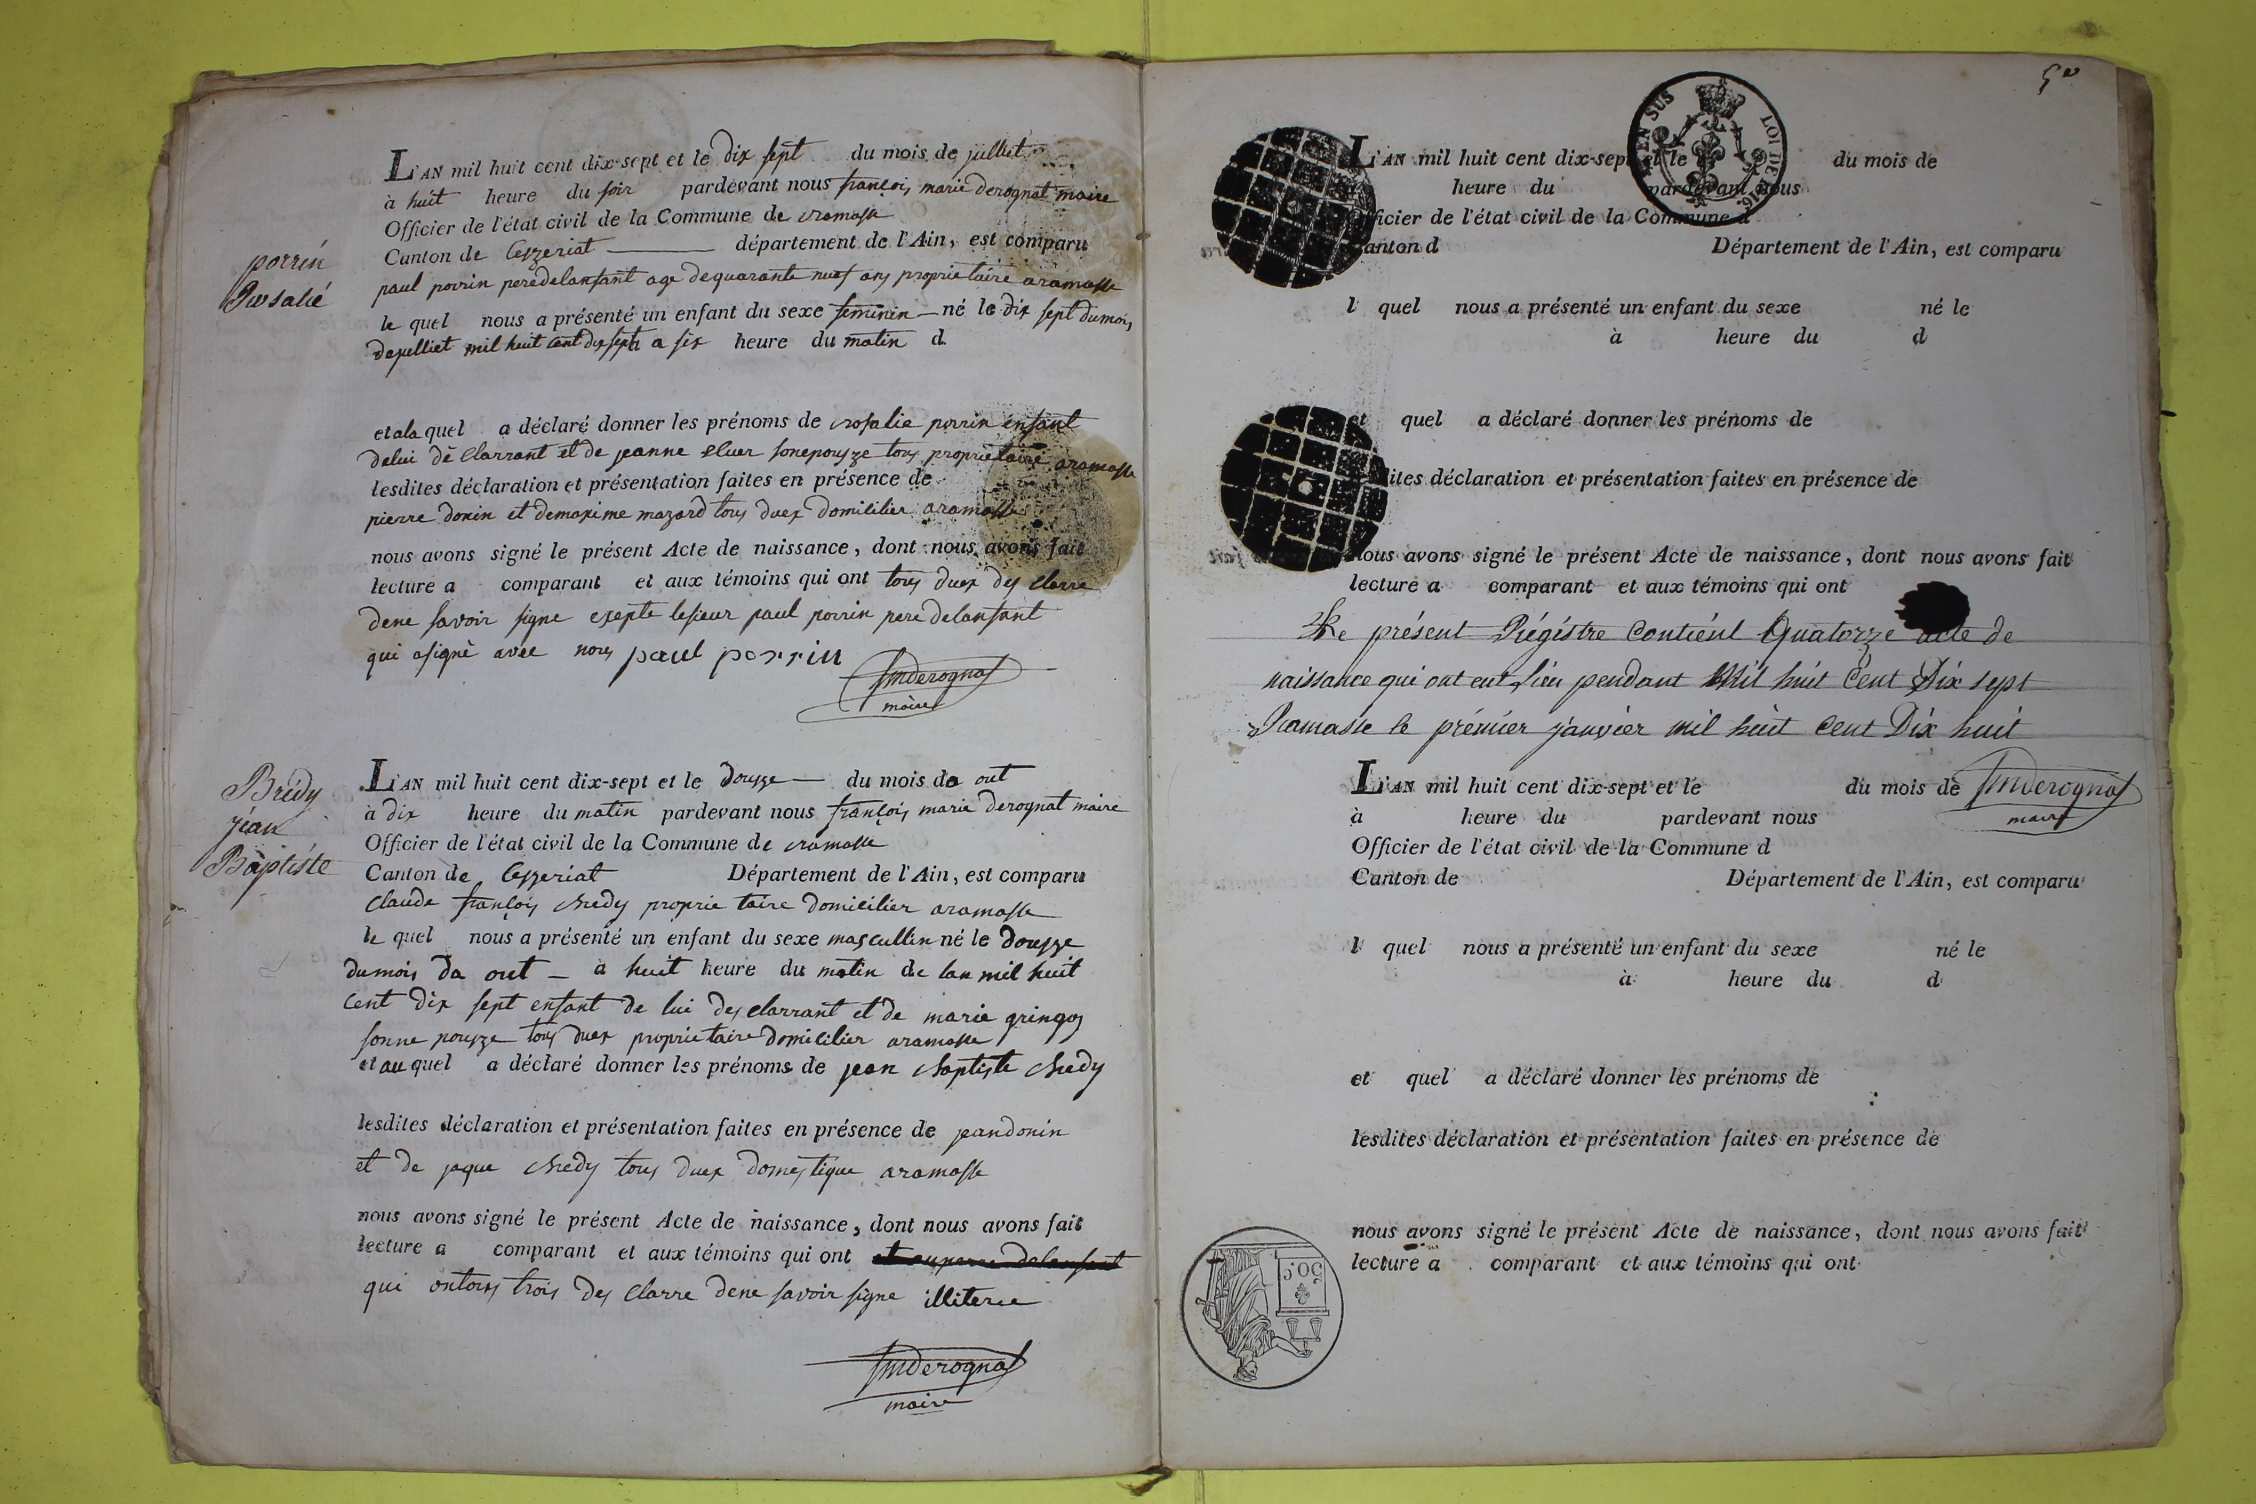 porrin
Rosalié
L'AN mil huit cent dix-sept et le dix sept du mois de julliet
à huit heure du soir pardevant nous françois marie derognat maire
Officier de l'état civil de la Commune de ramasse
Canton de Ceyzeriat département de l'Ain, est comparu
paul porrin pere delanfant age dequarante nuef ans proprietaire aramasse
le quel nous a présenté un enfant du sexe feminin né le dix sept dumois
dejulliet mil huit cent dix sept a six heure du matin d
et ala quel a déclaré donner les prénoms de rosalie porrin enfant
delui dé clarrant et de jeanne sonepouzze tous proprietaire aramasse
lesdites déclaration et présentation faites en présence de
pierre donin et demaxime mazard tous duex domicilier aramasse
nous avons signé le présent Acte de naissance, dont nous avons fait
lecture a comparant et aux témoins qui ont tous duex des clarre
dene savoir signe exepte lesieur paul porrin pere delanfant
qui asigné avec nous paul porrin
fmderognat
maire
Brédy
jean
Baptiste
L'AN mil huit cent dix-sept et le douzze du mois da out
à dix heure du matin pardevant nous françois marie derognat maire
Officier de l'état civil de la Commune de ramasse
Canton de Ceyzeriat Département de l'Ain, est comparu
claude françois bredy proprie taire domicilier aramasse
le quel nous a présenté un enfant du sexe mascullin né le douzze
dumois da out a huit heure du matin de lan mil huit
cent dix sept enfant de lui des clarrant et de marie gringoz
sonne pouzze tous duex proprietaire domicilier aramasse
et au quel a déclaré donner les prénoms de jean baptiste bredy
lesdites déclaration et présentation faites en présence de jeandonin
et de jaque bredy tous duex domestique aramasse
nous avons signé le présent Acte de naissance, dont nous avons fait
lecture a comparant et aux témoins qui ont
qui ontous trois des clarre dene savoir signe illiterée
fmderognat
maire
5e
EN SUS LOI DE 1816.
L'AN mil huit cent dix-sept et le du mois de
heure du pardevant nous
Officier de l'état civil de la Commune d
Canton d Département de l'Ain, est comparu
l quel nous a présenté un enfant du sexe né le
à heure du d
et quel a déclaré donner les prénoms de
lesdites déclaration et présentation faites en présence de
nous avons signé le présent Acte de naissance, dont nous avons fait
lecture a comparant et aux témoins qui ont
Le présent Régistre Contiént Quatorze acte de
naissance qui ont eut Lieu pendant Mil huit Cent Dix sept
Ramasse le prémiér janvièr mil huit Cent Dix huit
fmderognat
maire
L'AN mil huit cent dix-sept et le du mois de
à heure du pardevant nous
Officier de l'état civil de la Commune d
Canton de Département de l'Ain, est comparu
l quel nous a présenté un enfant du sexe né le
à heure du d
et quel a déclaré donner les prénoms de
lesdites déclaration et présentation faites en présence de
nous avons signé le présent Acte de naissance, dont nous avons fait
lecture a comparant et aux témoins qui ont
50 c